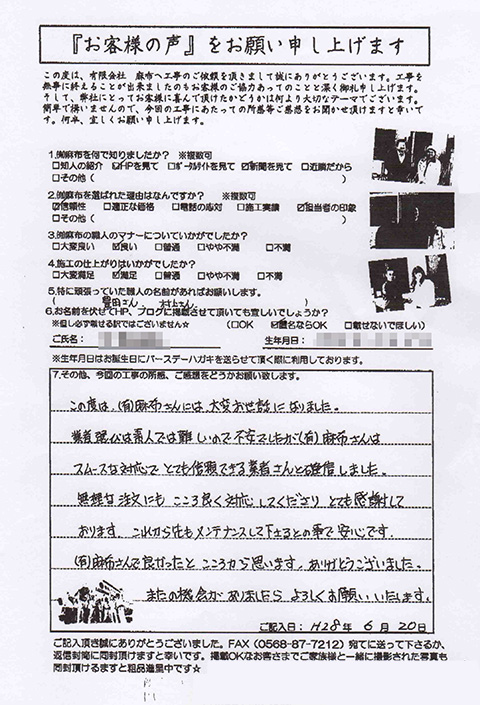 『お客様の声』をお願い申し上げます
この度は、有限会社 麻布へ工事のご依頼を頂きまして誠にありがとうございます。工事を
無事に終えることが出来ましたのもお客様のご協力あってのことと深く御礼申し上げます。
そして、弊社にとってお客様に喜んで頂けたかどうかは何より大切なテーマでございます。
簡単で構いませんので、今回の工事にあたっての所感等ご感想をお聞かせ頂けますと幸いで
す。何卒、宜しくお願い申し上げます。
1.㈲麻布を何で知りましたか？ ※複数可
□知人の紹介 ☑HPを見て □ポータルサイトを見て ☑新聞を見て □近隣だから
□その他( )
2.㈲麻布を選ばれた理由はなんですか？ ※複数可
☑信頼性 □適正な価格 □電話の応対 □施工実績 ☑担当者の印象
□その他( )
3.㈲麻布の職人のマナーについていかがでしたか？
□大変良い ☑良い □普通 □やや不満 □不満
4.施工の仕上がりはいかがでしたか？
□大変満足 ☑満足 □普通 □やや不満 □不満
5.特に頑張っていた職人の名前があればお願いします。
( 豊田さん、村上さん )
6.お名前を伏せてHP、ブログに掲載させて頂いても宜しいでしょうか？
※但し必ず載せる訳ではございません☆ (□OK ☑匿名ならOK □載せないでほしい)
ご氏名： 生年月日：
※生年月日はお誕生日にバースデーハガキを送らせて頂く際に利用しております。
7.その他、今回の工事の所感、ご感想をどうかお願い致します。
この度は、(有)麻布さんには、大変お世話になりました。
業者選びは素人では難しいので不安でしたが(有)麻布さんは
スムースな対応で とても信頼できる業者さんと確信しました。
無理な注文にも こころ良く対応してくださり とても感謝して
おります。これから先もメンテナンスして下さるとの事で安心です。
(有)麻布さんで良かったと こころから思います。ありがとうございました。
またの機会がありましたら よろしくお願いいたします。
ご記入日：H28年 6月 20日
ご記入頂き誠にありがとうございました。FAX（0568-87-7212）宛てに送って下さるか、
返信封筒に同封頂けますと幸いです。掲載OKなお客さまでご家族様と一緒に撮影された写真も
同封頂けるますと粗品進呈中です☆